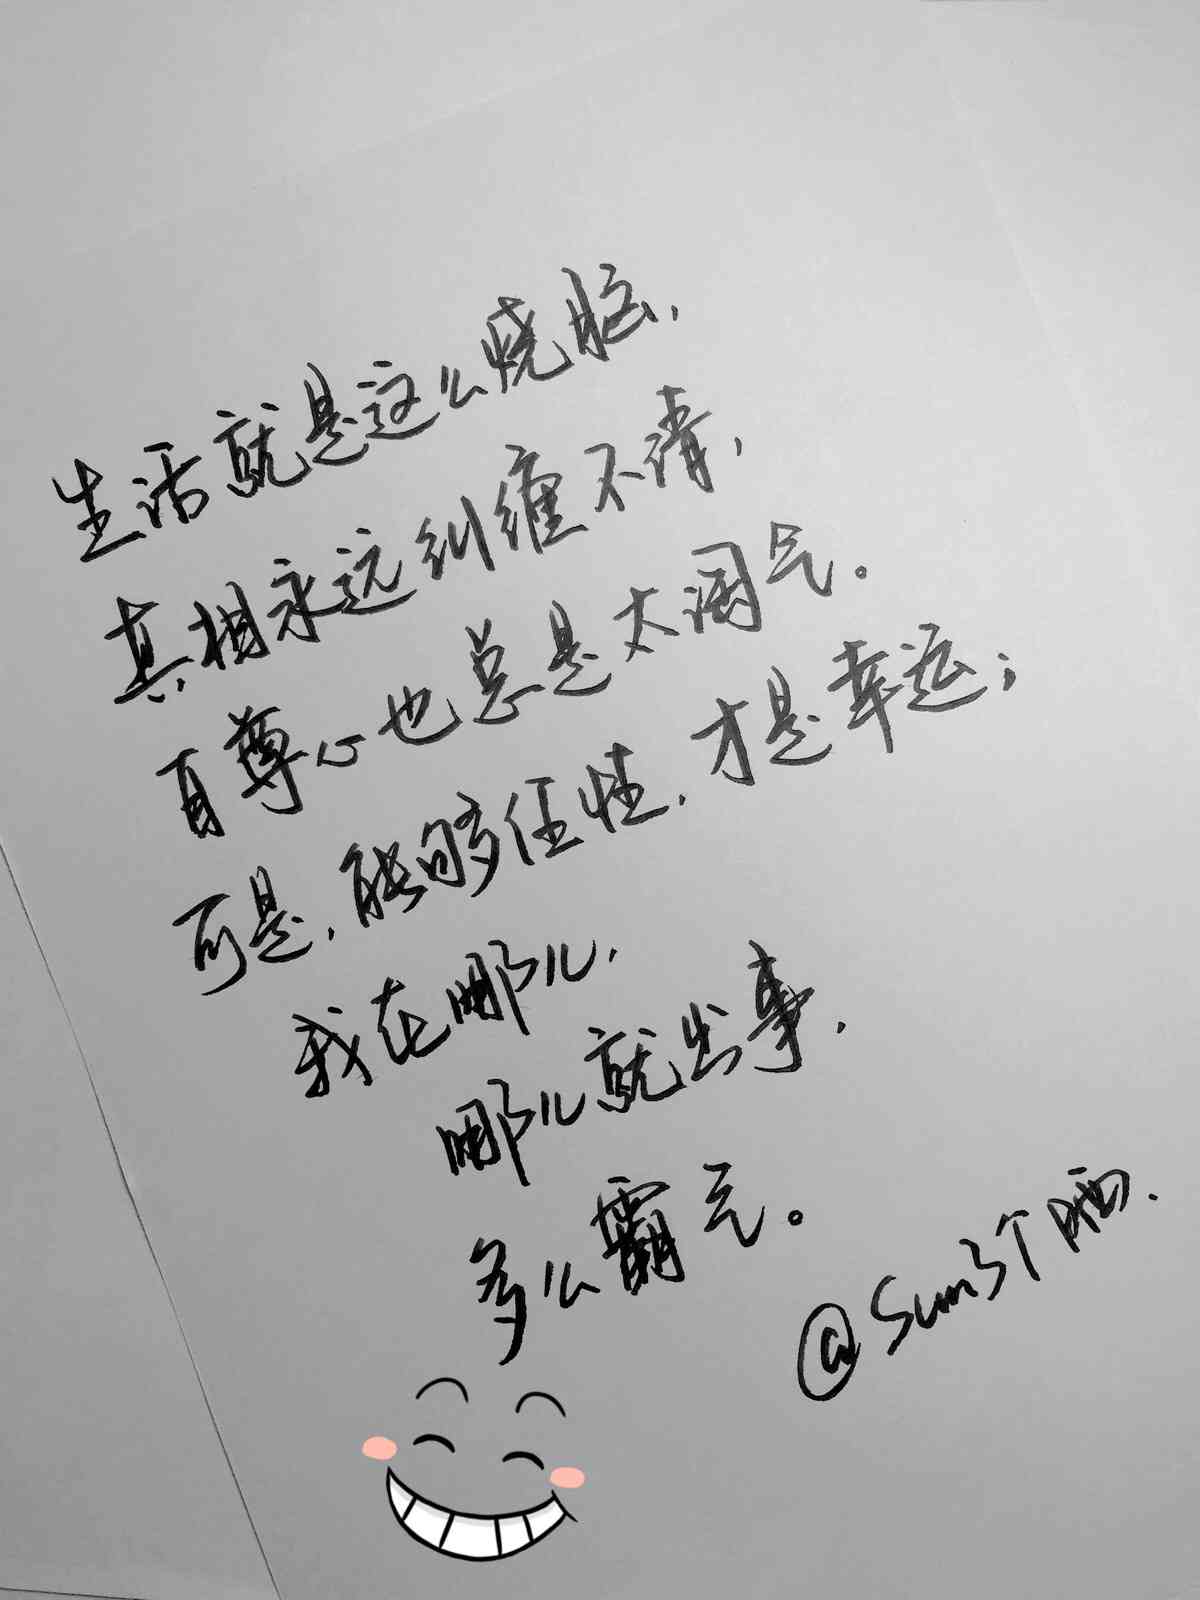 生活就是这么烧脑,
真相永远纠缠不清,
自尊心也总是太淘气。
可是,能够任性,才是幸运;
我在哪儿,
哪儿就出事,
多么霸气。
@Sum3个晒.